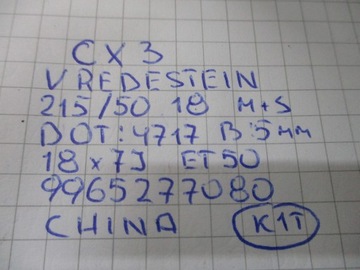 CX3
VREDESTEIN
215/50 18 M+S
DOT:4717 B:5mm
18x7J ET50
9965277080
CHINA K1T